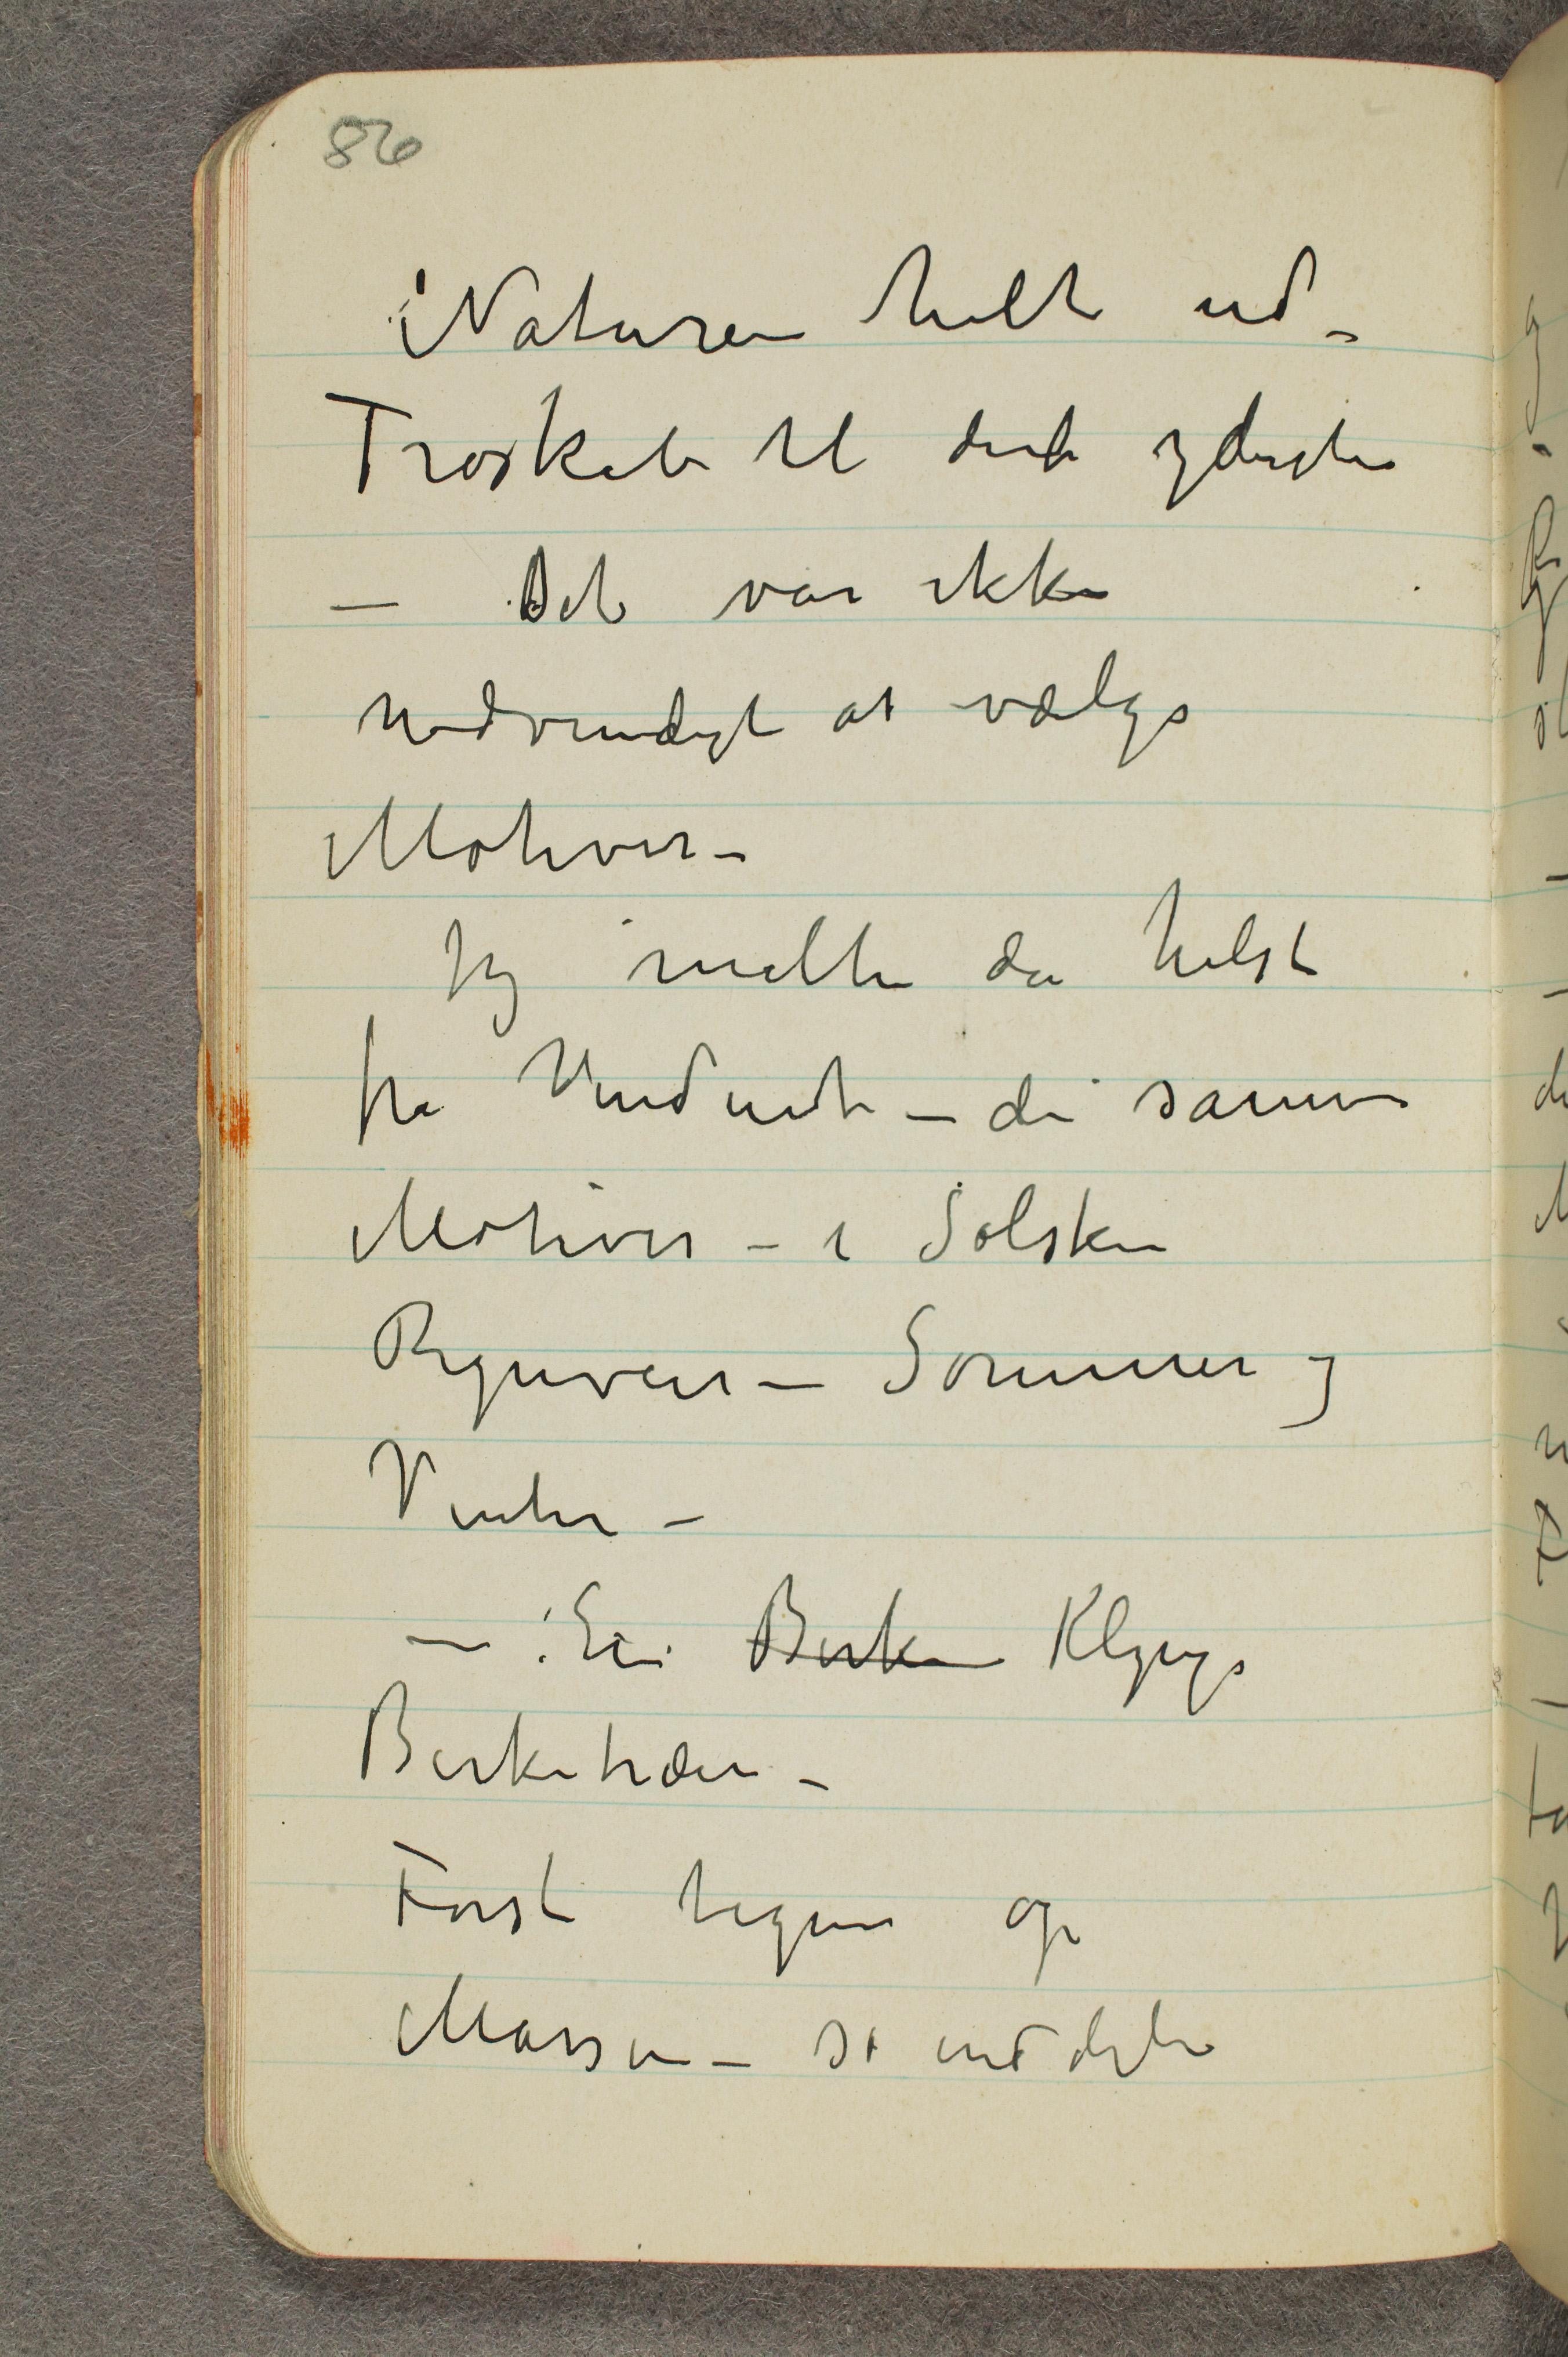 86
Naturen helt ud –
Troskab til det yderste
– Det var ikke
nødvendigt at vælge
Motiver –
Jeg malte da helst
fra Vinduet – de samme
Motiver – i Solskin
Regnveir – Sommer og
Vinter –
– En Birke Klynge
Birketræer –
Først tegne op
Massen – så inddele